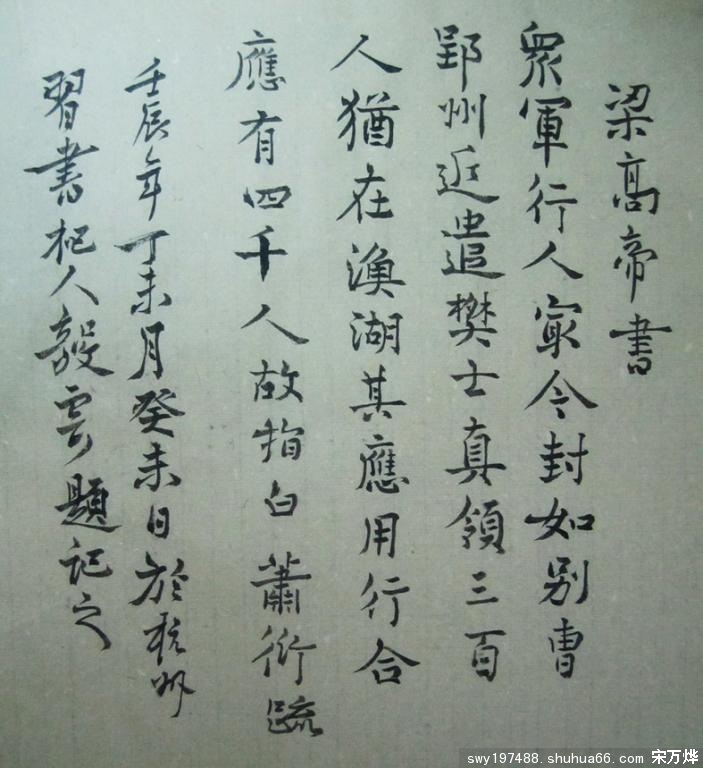 梁高帝書
衆軍行人寂令封如别曹
郢州近遣樊士真領三百
人猶在漁湖其應用行合
應有四千人故指白蕭衍疏
壬辰年丁未月癸未日於杭州
習書杞人毅雲題記之
swy197488.shuhua66.com 宋万烨